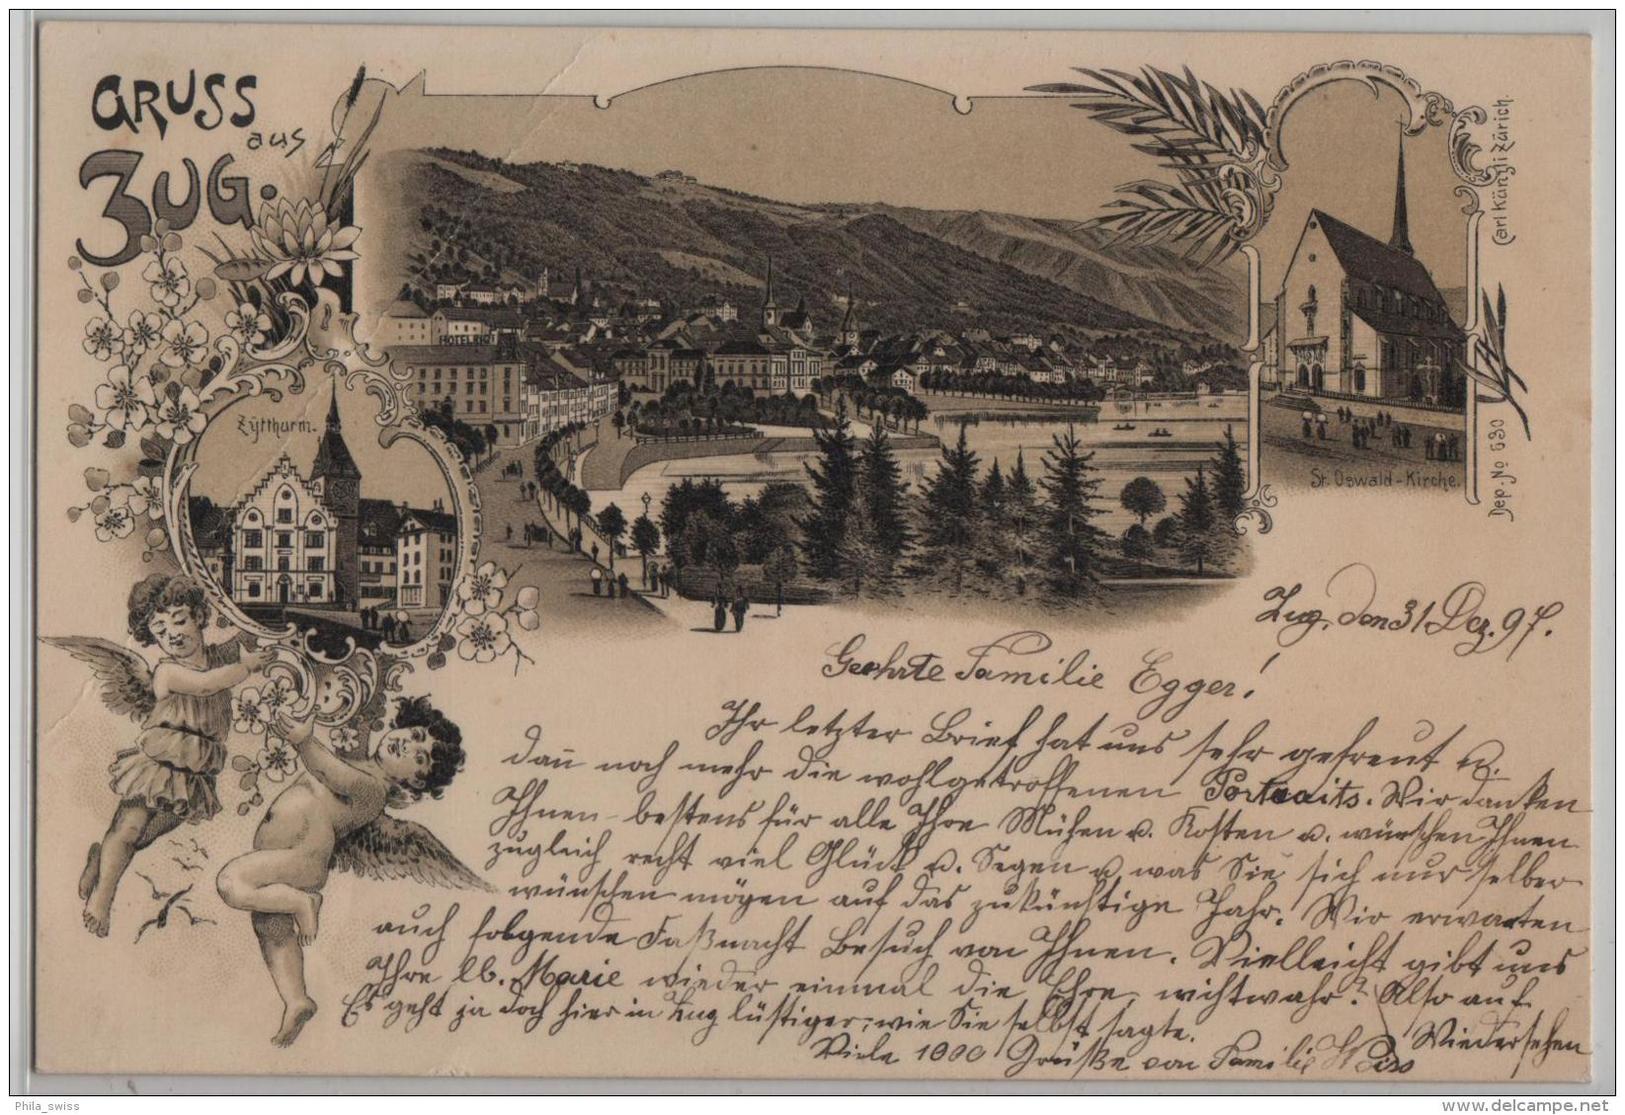 GRUSS
aus
ZUG.
HOTEL RIGI
Zÿtthurm.
St. Oswald-Kirche.
Carl Künzli Zürich.
Dep. No 630
Zug, den 31 Dez. 97.
Geehrte Familie Egger!
Ihr letzter Brief hat uns sehr gefreut u.
dan̄ noch mehr die wohlgetroffenen Portraits. Wir danken
Ihnen bestens für alle Ihre Mühen u. Kosten u. wünschen Ihnen
zugleich recht viel Glück u. Segen u. was Sie sich nur selber
wünschen mögen auf das zukünftige Jahr. Wir erwarten
auch folgende Faßnacht Besuch von Ihnen. Vielleicht gibt uns
Ihre lb. Marie wieder einmal die Ehre, nichtwahr? Also auf
Es geht ja doch hier in Zug lüstiger, wie Sie selbst sagte.
Wiedersehen
Viele 1000 Grüße von Familie
Phila_swiss
delcampe.net